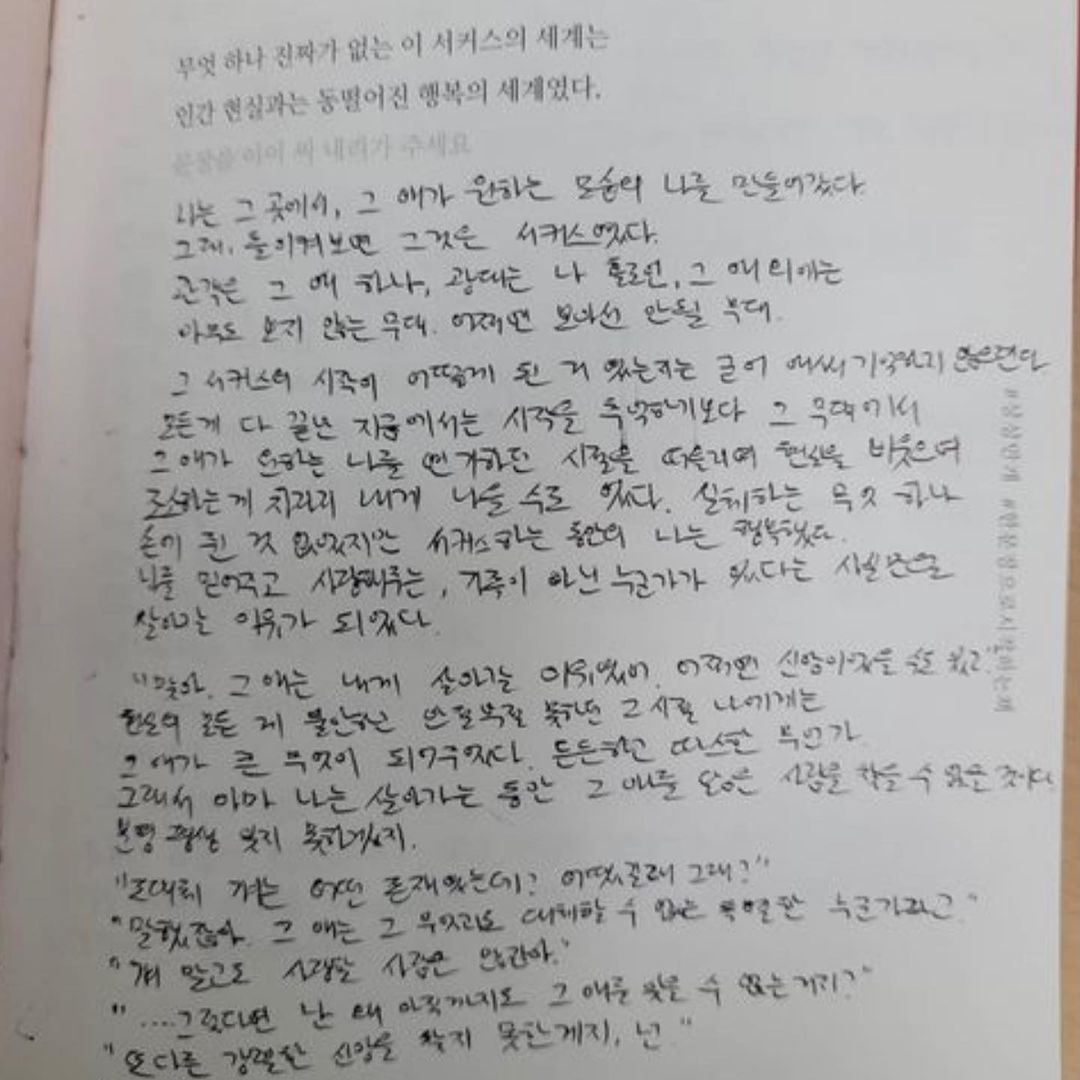 무엇 하나 진짜가 없는 이 서커스의 세계는
인간 현실과는 동떨어진 행복의 세계였다.
문장을 이어 써 내려가 주세요
나는 그 곳에서, 그 애가 원하는 모습의 나를 만들어갔다
그래. 돌이켜보면 그것은 서커스였다.
관객은 그 애 하나, 광대는 나 홀로인, 그 애 외에는
아무도 보지 않는 무대. 어쩌면 보아선 안될 무대.
그 서커스의 시작이 어떻게 된 거 였는지는 글어 애써 기억하지 않으련다
모든게 다 끝난 지금에서는 시작을 추억하기보다 그 무대에서
그 애가 원하는 나를 연기하던 시절을 떠올리며 현실을 비웃으며
조소하는게 차라리 내게 나을 수도 있다. 실체하는 무엇 하나
손에 쥔 것 없었지만 서커스하는 동안의 나는 행복했다.
나를 믿어주고 사랑해주는, 가족이 아닌 누군가가 있다는 사실만으로
살아갈 이유가 되었다.
"맞아. 그 애는 내게 살아갈 이유였어. 어쩌면 신앙이었을 수도 있고."
현실의 모든 게 불안하고 만족하지 못하던 그 시절 나에게는
그 애가 큰 무엇이 되어주었다. 든든하고 따스한 무언가
그래서 아마 나는 살아가는 동안 그 애를 닮은 사람을 찾을 수 없을 것이다
분명 평생 잊지 못하겠지.
"도대체 걔는 어떤 존재였는데? 어땠길래 그래?"
"말했잖아. 그 애는 그 무엇과도 대체할 수 없는 특별한 누군가라고."
"걔 말고도 사랑할 사람은 많잖아."
"....그렇다면 난 왜 아직까지도 그 애를 잊을 수 없는거지?"
"또다른 강렬한 신앙을 찾지 못한게지, 넌."
#상상만개 #한문장으로시작하는책